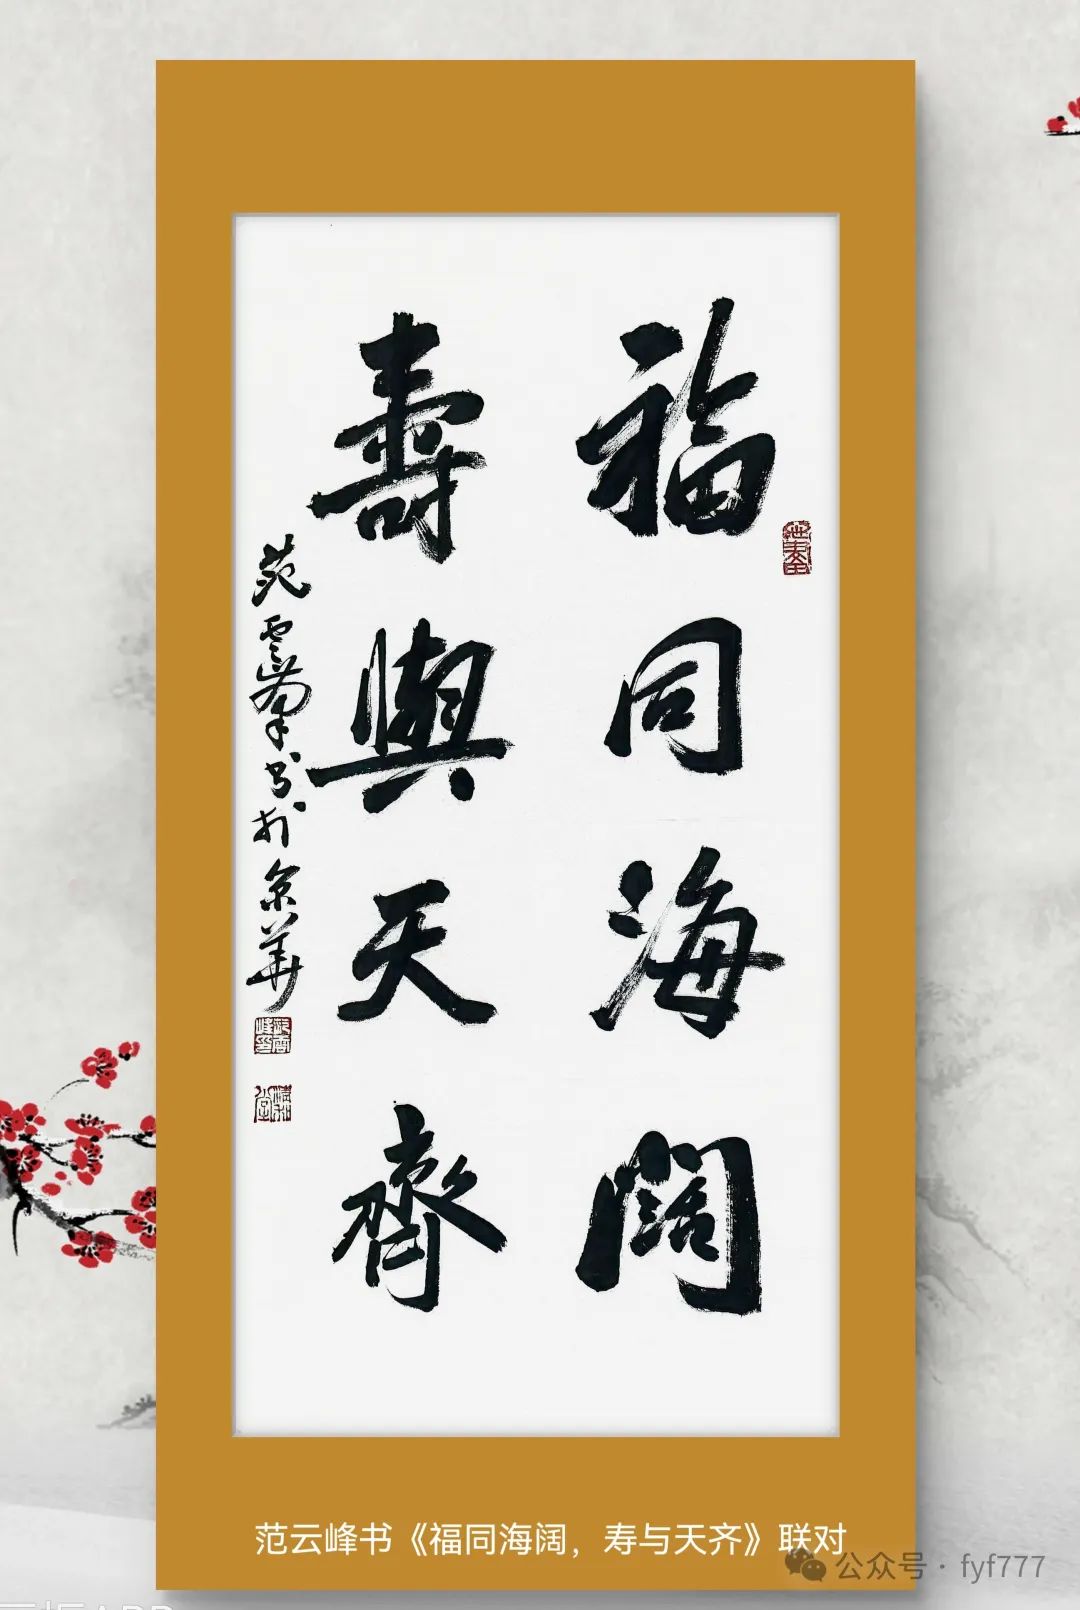 福同海阔
壽與天齊
范雲峯书於京華
范云峰书《福同海阔，寿与天齐》联对
公众号·fyf777